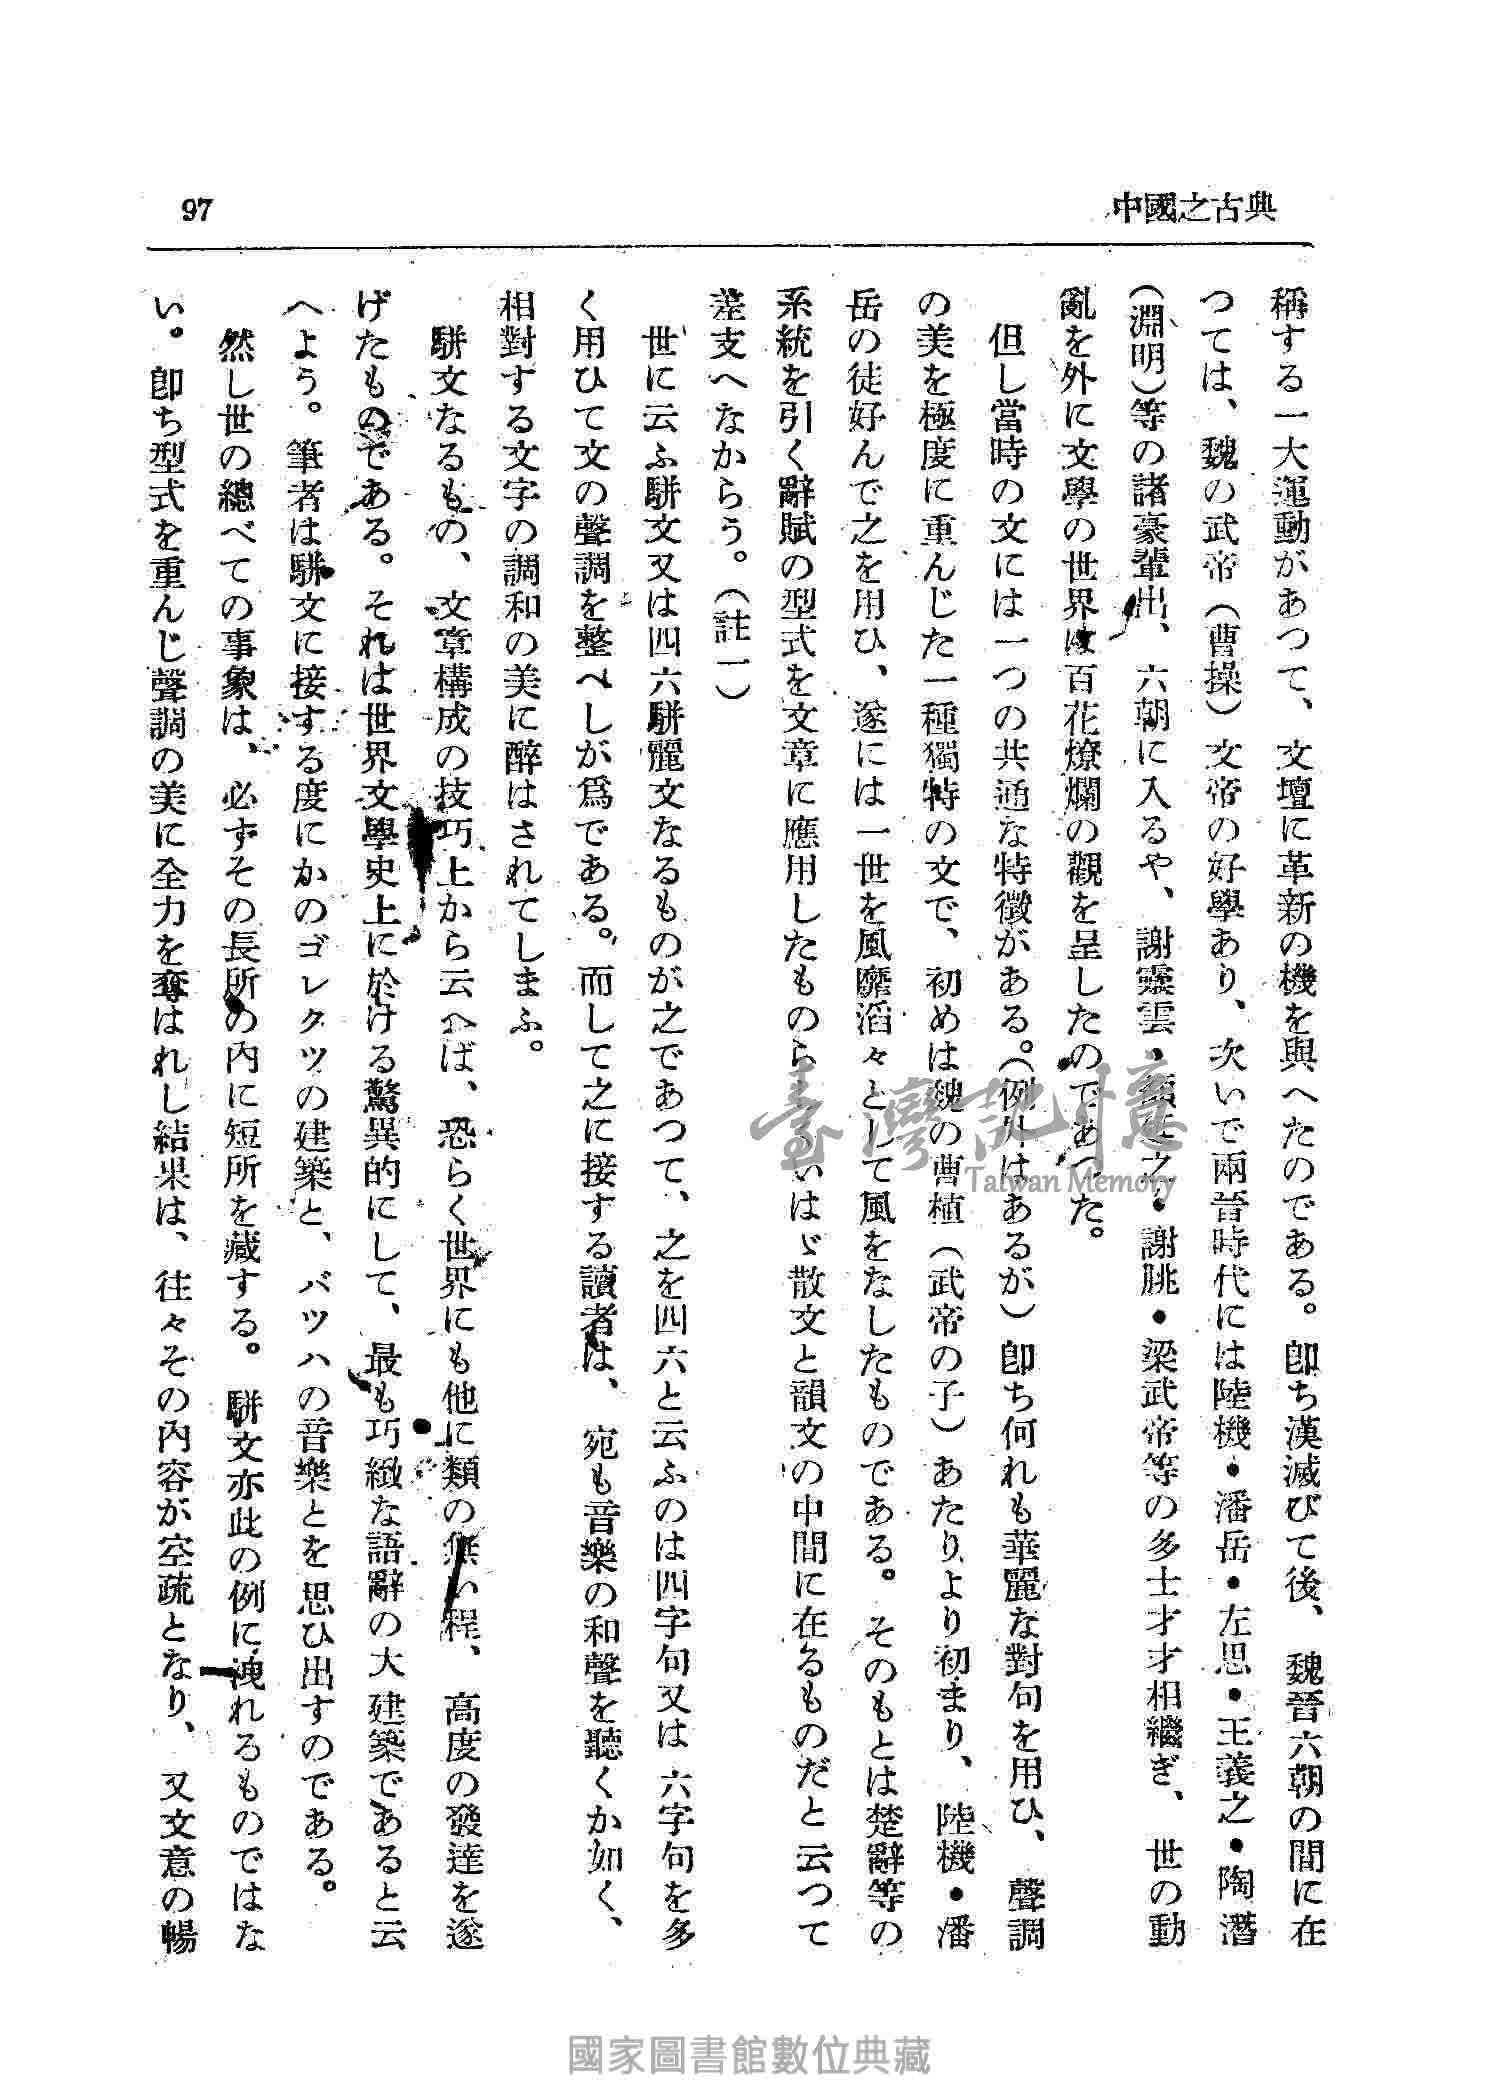 中國之古典
97
稱する一大運動があつて、文壇に革新の機を與へたのである。卽ち漢滅びて後、魏晉六朝の間に在
つては、魏の武帝（曹操）文帝の好學あり、次いで兩晉時代には陸機・潘岳・左思・王義之・陶潛
（淵明）等の諸豪輩出、六朝に入るや、謝靈雲・之・謝朓・梁武帝等の多士才才相繼ぎ、世の動
亂を外に文學の世界は百花燎爛の觀を呈したのであつた。
但し當時の文には一つの共通な特徵がある。（例外はあるが）卽ち何れも華麗な對句を用ひ、聲調
の美を極度に重んじた一種獨特の文で、初めは魏の曹植（武帝の子）あたりより初まり、陸機・潘
岳の徒好んで之を用ひ、遂には一世を風靡滔々として風をなしたものである。そのもとは楚辭等の
系統を引く辭賦の型式を文章に應用したものらいはゞ散文と韻文の中間に在るものだと云つて
差支へなからう。（註一）
世に云ふ駢文又は四六駢麗文なるものが之であつて、之を四六と云ふのは四字句又は六字句を多
く用ひて文の聲調を整へしが爲である。而して之に接する讀者は、宛も音樂の和聲を聽くか如く、
相對する文字の調和の美に醉はされてしまふ。
駢文なるもの、文章構成の技巧上から云へば、恐らく世界にも他に類の無い程、高度の發達を遂
げたものである。それは世界文學史上に於ける驚異的にして、最も巧緻な語辭の大建築であると云
へよう。筆者は駢文に接する度にかのゴレクツの建築と、バツハの音樂とを思ひ出すのである。
然し世の總べての事象は、必ずその長所の內に短所を藏する。駢文亦此の例に洩れるものではな
い。卽ち型式を重んじ聲調の美に全力を奪はれし結果は、往々その內容が空疏となり、又文意の暢
臺灣記憶
Taiwan Memory
國家圖書館數位典藏